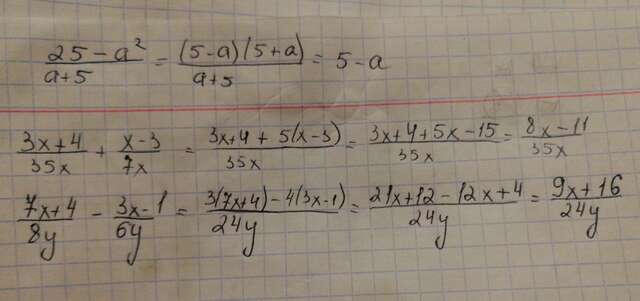 (25-a²)/(a+5) = ((5-a)(5+a))/(a+5) = 5-a
(3x+4)/(35x) + (x-3)/(7x) = (3x+4+5(x-3))/(35x) = (3x+4+5x-15)/(35x) = (8x-11)/(35x)
(7x+4)/(8y) - (3x-1)/(6y) = (3(7x+4)-4(3x-1))/(24y) = (21x+12-12x+4)/(24y) = (9x+16)/(24y)